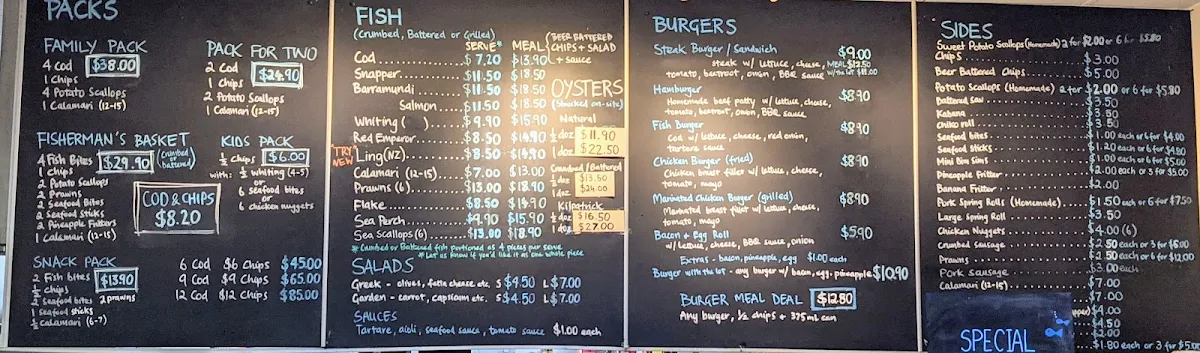 PACKS
FAMILY PACK
4 Cod $38.00
1 Chips
4 Potato Scallops
1 Calamari (12-15)
PACK FOR TWO
2 Cod $24.90
1 Chips
2 Potato Scallops
1 Calamari (12-15)
FISHERMAN'S BASKET
4 Fish Bites $29.90 (Crumbed or battered)
1 Chips
2 Potato Scallops
2 Prawns
2 Seafood Bites
2 Seafood Sticks
2 Pineapple Fritters
1 Calamari (12-15)
KIDS PACK
½ Chips $6.00
with: ½ whiting (4-5)
or
6 seafood bites
or
6 chicken nuggets
COD & CHIPS
$8.20
SNACK PACK
2 Fish bites $13.90
½ chips
2 Seafood bites 2 prawns
1 Seafood sticks
½ Calamari (6-7)
6 Cod $6 Chips $45.00
9 Cod $9 Chips $65.00
12 Cod $12 Chips $85.00
FISH
(Crumbed, Battered or Grilled)
SERVE* MEAL (BEER BATTERED CHIPS + SALAD + sauce
Cod $7.20 $13.90
Snapper $11.50 $18.50
Barramundi $11.50 $18.50
Salmon $11.50 $18.50
Whiting ( ) $9.90 $15.90
Red Emperor $8.50 $14.90
TRY NEW Ling (NZ) $8.50 $14.90
Calamari (12-15) $7.00 $13.00
Prawns (6) $13.00 $18.90
Flake $8.50 $14.90
Sea Perch $9.90 $15.90
Sea Scallops (6) $13.00 $18.90
* Crumbed or Battered fish portioned as 4 pieces per serve
* Let us know if you'd like it as one whole piece
OYSTERS
(Shucked on-site)
Natural
½ doz $11.90
1 doz $22.50
Crumbed/Battered
½ doz $13.50
1 doz $24.00
Kilpatrick
½ doz $16.50
1 doz $27.00
SALADS
Greek - olives, fetta cheese etc. S $4.50 L $7.00
Garden - carrot, capsicum etc. S $4.50 L $7.00
SAUCES
Tartare, aioli, seafood sauce, tomato sauce $1.00 each
BURGERS
Steak Burger / Sandwich $9.00
steak w/ lettuce, cheese, MEAL $12.50
tomato, beetroot, onion, BBQ sauce w/the lot $11.00
Hamburger $8.90
Homemade beef patty w/ lettuce, cheese,
tomato, beetroot, onion, BBQ sauce
Fish Burger $8.90
Cod w/ lettuce, cheese, red onion,
tartare sauce
Chicken Burger (fried) $8.90
Chicken breast fillet w/ lettuce, cheese,
tomato, mayo
Marinated Chicken Burger (grilled) $8.90
Marinated breast fillet w/ lettuce, cheese,
tomato, mayo
Bacon & Egg Roll $5.90
w/ lettuce, cheese, BBQ sauce, onion
Extras - bacon, pineapple, egg $1.00 each
Burger with the lot - any burger w/ bacon, egg, pineapple $10.90
BURGER MEAL DEAL $12.80
Any burger, ½ chips + 375ml can
SIDES
Sweet Potato Scallops (Homemade) 2 for $2.00 or 6 for $5.80
Chips $3.00
Beer Battered Chips $5.00
Potato Scallops (Homemade) 2 for $2.00 or 6 for $5.80
Battered Sav $3.50
Kabana $3.50
Chiko roll $3.50
Seafood bites $1.00 each or 6 for $4.00
Seafood Sticks $1.20 each or 6 for $4.80
Mini Dim Sims $1.00 each or 6 for $5.00
Pineapple Fritter $2.00 each or 3 for $5.00
Banana Fritter $2.00
Pork Spring Rolls (Homemade) $1.50 each or 6 for $7.50
Large Spring Roll $3.50
Chicken Nuggets $4.00 (6)
Crumbed sausage $2.50 each or 3 for $6.00
Prawns $2.50 each or 6 for $12.00
Pork sausage $3.00 each
Calamari (12-15) $7.00
$7.00
$4.00
$4.50
$2.00
$1.80 each or 3 for $5.00
SPECIAL